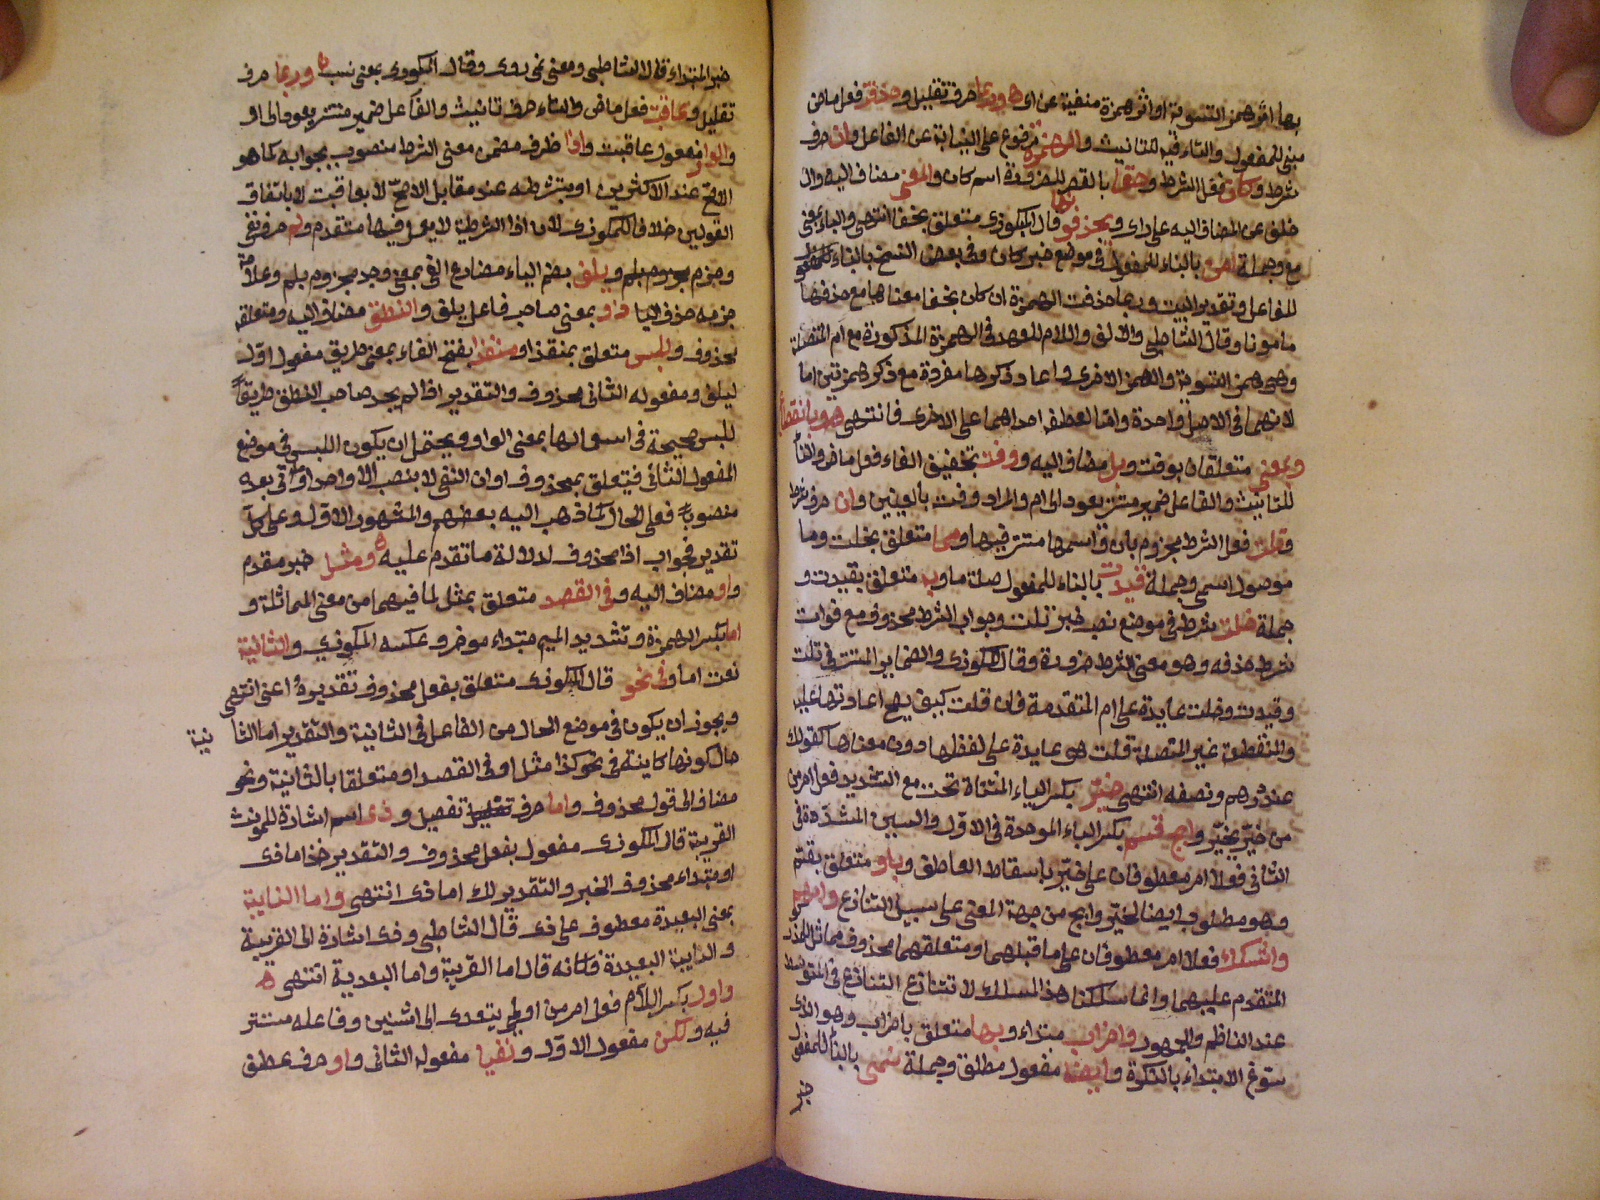 بها اثر همز التسوية او اثر همزة مغنية عن اى ه وربما حرف تقليل وحذفت فعل ماض
مبنى للمفعول والتاء فيه للتانيث والهمزة مرفوع على النيابة عن الفاعل وان حرف
شرط وكان فعل الشرط وخفا بالقصر للضرورة اسم كان والمعنى مضاف اليه وال
خلف عن المضاف اليه على راى وبحذفها قال المكودى متعلق بخفا انتهى والباء بمعنى
مع وجملة امن بالبناء للمفعول فى موضع خبر كان وفى بعض النسخ بالبناء
للفاعل وتقدير البيت وربما حذفت الهمزة ان كان بخفا معناها مع حذفها
مامونا وقال الشاطبى والالف واللام للعهد فى الهمزة المذكورة مع ام المتصلة
وهى همز التسوية والهمز الاخرى واعاد ذكرها مفردة مع ذكر همزتين اما
لانهما فى الاصل واحدة واما لعطف احداهما على الاخرى فانتهى ه وبانقطاع
وبمعنى متعلقان بوفت وبل مضاف اليه ووفت بتخفيف الفاء فعل ماض والتاء
للتانيث والفاعل ضمير مستتر يعود الى ام والمراد وفت بالعينين وان حرف شرط
وتك فعل الشرط مجزوم بان واسمها مستتر فيها ومما متعلق بخلت وما
موصول اسمى وجملة قيدت بالبناء للمفعول صلة ما وبه متعلق بقيدت و
جملة خلت شرط فى موضع نصب خبر تك وجواب الشرط محذوف مع فوات
شرط حذفه وهو معنى الشرط ضرورة وقال المكودى والضماير المستتر فى تك
وقيدت وخلت عايدة على ام المتقدمة فان قلت كيف يصح اعادتها عليه
والمنقطعة غير المتصلة قلت هو عايدة على لفظها دون معناها كقولك
عندى درهم ونصفه انتهى خير بكسر الياء المثناة تحت مع التشديد فعل امر من
من خير يخير وابح قسم بكسر الباء الموحدة فى الاول والسين المشددة فى
الثانى فعلا امر معطوفان على خير باسقاط العاطف وباو متعلق بقسم
وهو مطلوب ايضا لخير وابح من جهة المعنى على سبيل التنازع وابهم
واشكك فعلا امر معطوفان على ما قبلهما ومتعلقهما محذوف مماثل
المتقدم عليهما وانما سلكنا هذا المسلك لا تنازع التنازع فى المتوسط
عند الناظم والجمهور واضراب مبتداء وبها متعلق باضراب وهو الذى
سوغ الابتداء بالنكرة وايضا مفعول مطلق وجملة نمى بالبناء للمفعول
خبر
خبر المبتداء قال الشاطبى ومعنى نمى روى وقال المكودى بمعنى نسب ه وربما حرف
تقليل وعاقبت فعل ماض والتاء حرف تانيث والفاعل ضمير مستتر يعود الى او
والواو مفعول عاقبت واذا ظرف مضمن معنى الشرط منصوب بجوابه كما هو
الاصح عند الاكثرين او بشرطه عند مقابل الاصح لا بعاقبت لا باتفاق
القولين خلافا للمكودى لان اذا الشرطية لا يعمل فيها متقدم ولم حرف نفى
وجزم ويلف بضم الياء مضارع الفى بمعنى وجد مجزوم بلم وعلامة
جزمه حذف اليا ذو بمعنى صاحب فاعل يلف والنطق مضاف اليه ومتعلقه
محذوف وللبس متعلق بمنفذا ومنفذا بفتح الفاء بمعنى طريق مفعول اول
ليلف ومفعوله الثانى محذوف والتقدير اذا لم يجد صاحب النطق طريقا
للبس صحيحة فى استعمالها بمعنى الواو ويحتمل ان يكون اللبس فى موضع
المفعول الثانى فيتعلق بمحذوف اوان النفى لا ينصب الا واحدا وما اتى بعده
منصوبا فعلى الحال كما ذهب اليه بعضهم والمشهور الاول وعلى كل
تقدير فجواب اذا محذوف لدلالة ما تقدم عليه ه ومثل خبر مقدم
واو مضاف اليه وفى القصد متعلق بمثل لما فيهما من معنى المماثلة و
اما بكسر الهمزة وتشديد الميم مبتداء موخر وعكسه المكودى والثانية
نعت اما وفى نحو قال المكودى متعلق بفعل محذوف تقديره اعنى انتهى
ويجوز ان يكون فى موضع الحال من الفاعل فى الثانية والتقدير اما الثا
نية
حال كونها كاينة فى نحو كذا مثل او فى القصد او متعلقا بالثانية ونحو
مضاف الى قول محذوف واما حرف تفصيل وذى اسم اشارة للمونث
القريبة قال المكودى مفعول بفعل محذوف والتقدير خذ اما ذى
او مبتداء محذوف الخبر والتقدير لك اما ذى انتهى واما النايية
بمعنى البعيدة معطوف على ذى قال الشاطبى وذى اشارة الى القريبة
والنايية البعيدة فكانه قال اما القريبة واما البعيدة انتهى ه
واول بكسر اللام فعل امر من اولى يتعدى الى اثنين وفاعله مستتر
فيه ولكن مفعول الاول ونفيا مفعوله الثانى واو حرف عطف